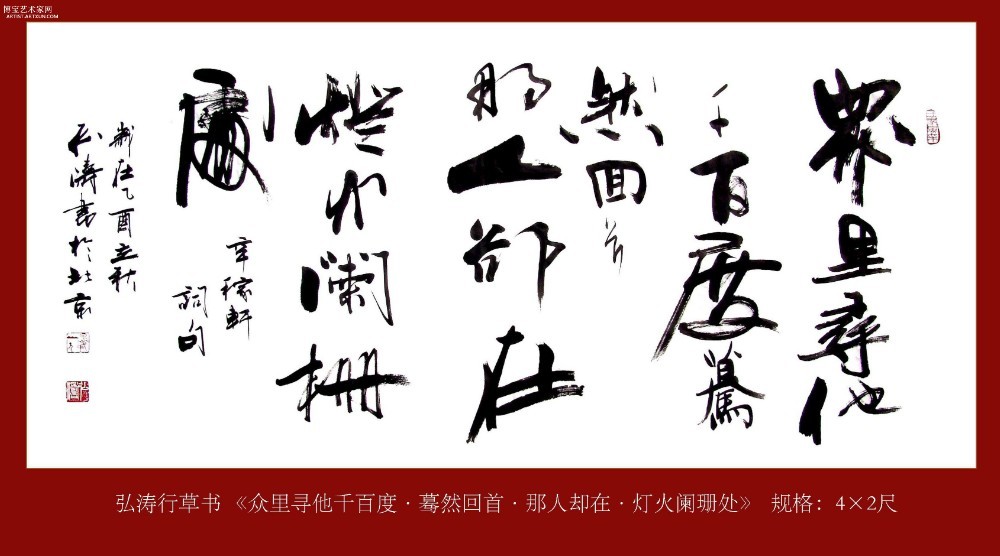 博宝艺术家网
ARTIST.ARTXUN.COM
眾里尋他
千百度驀
然回首
那人卻在
燈火闌珊
處
辛稼軒
詞句
制在乙酉立秋
弘濤書於北京
弘涛行草书 《众里寻他千百度·蓦然回首·那人却在·灯火阑珊处》 规格：4×2尺